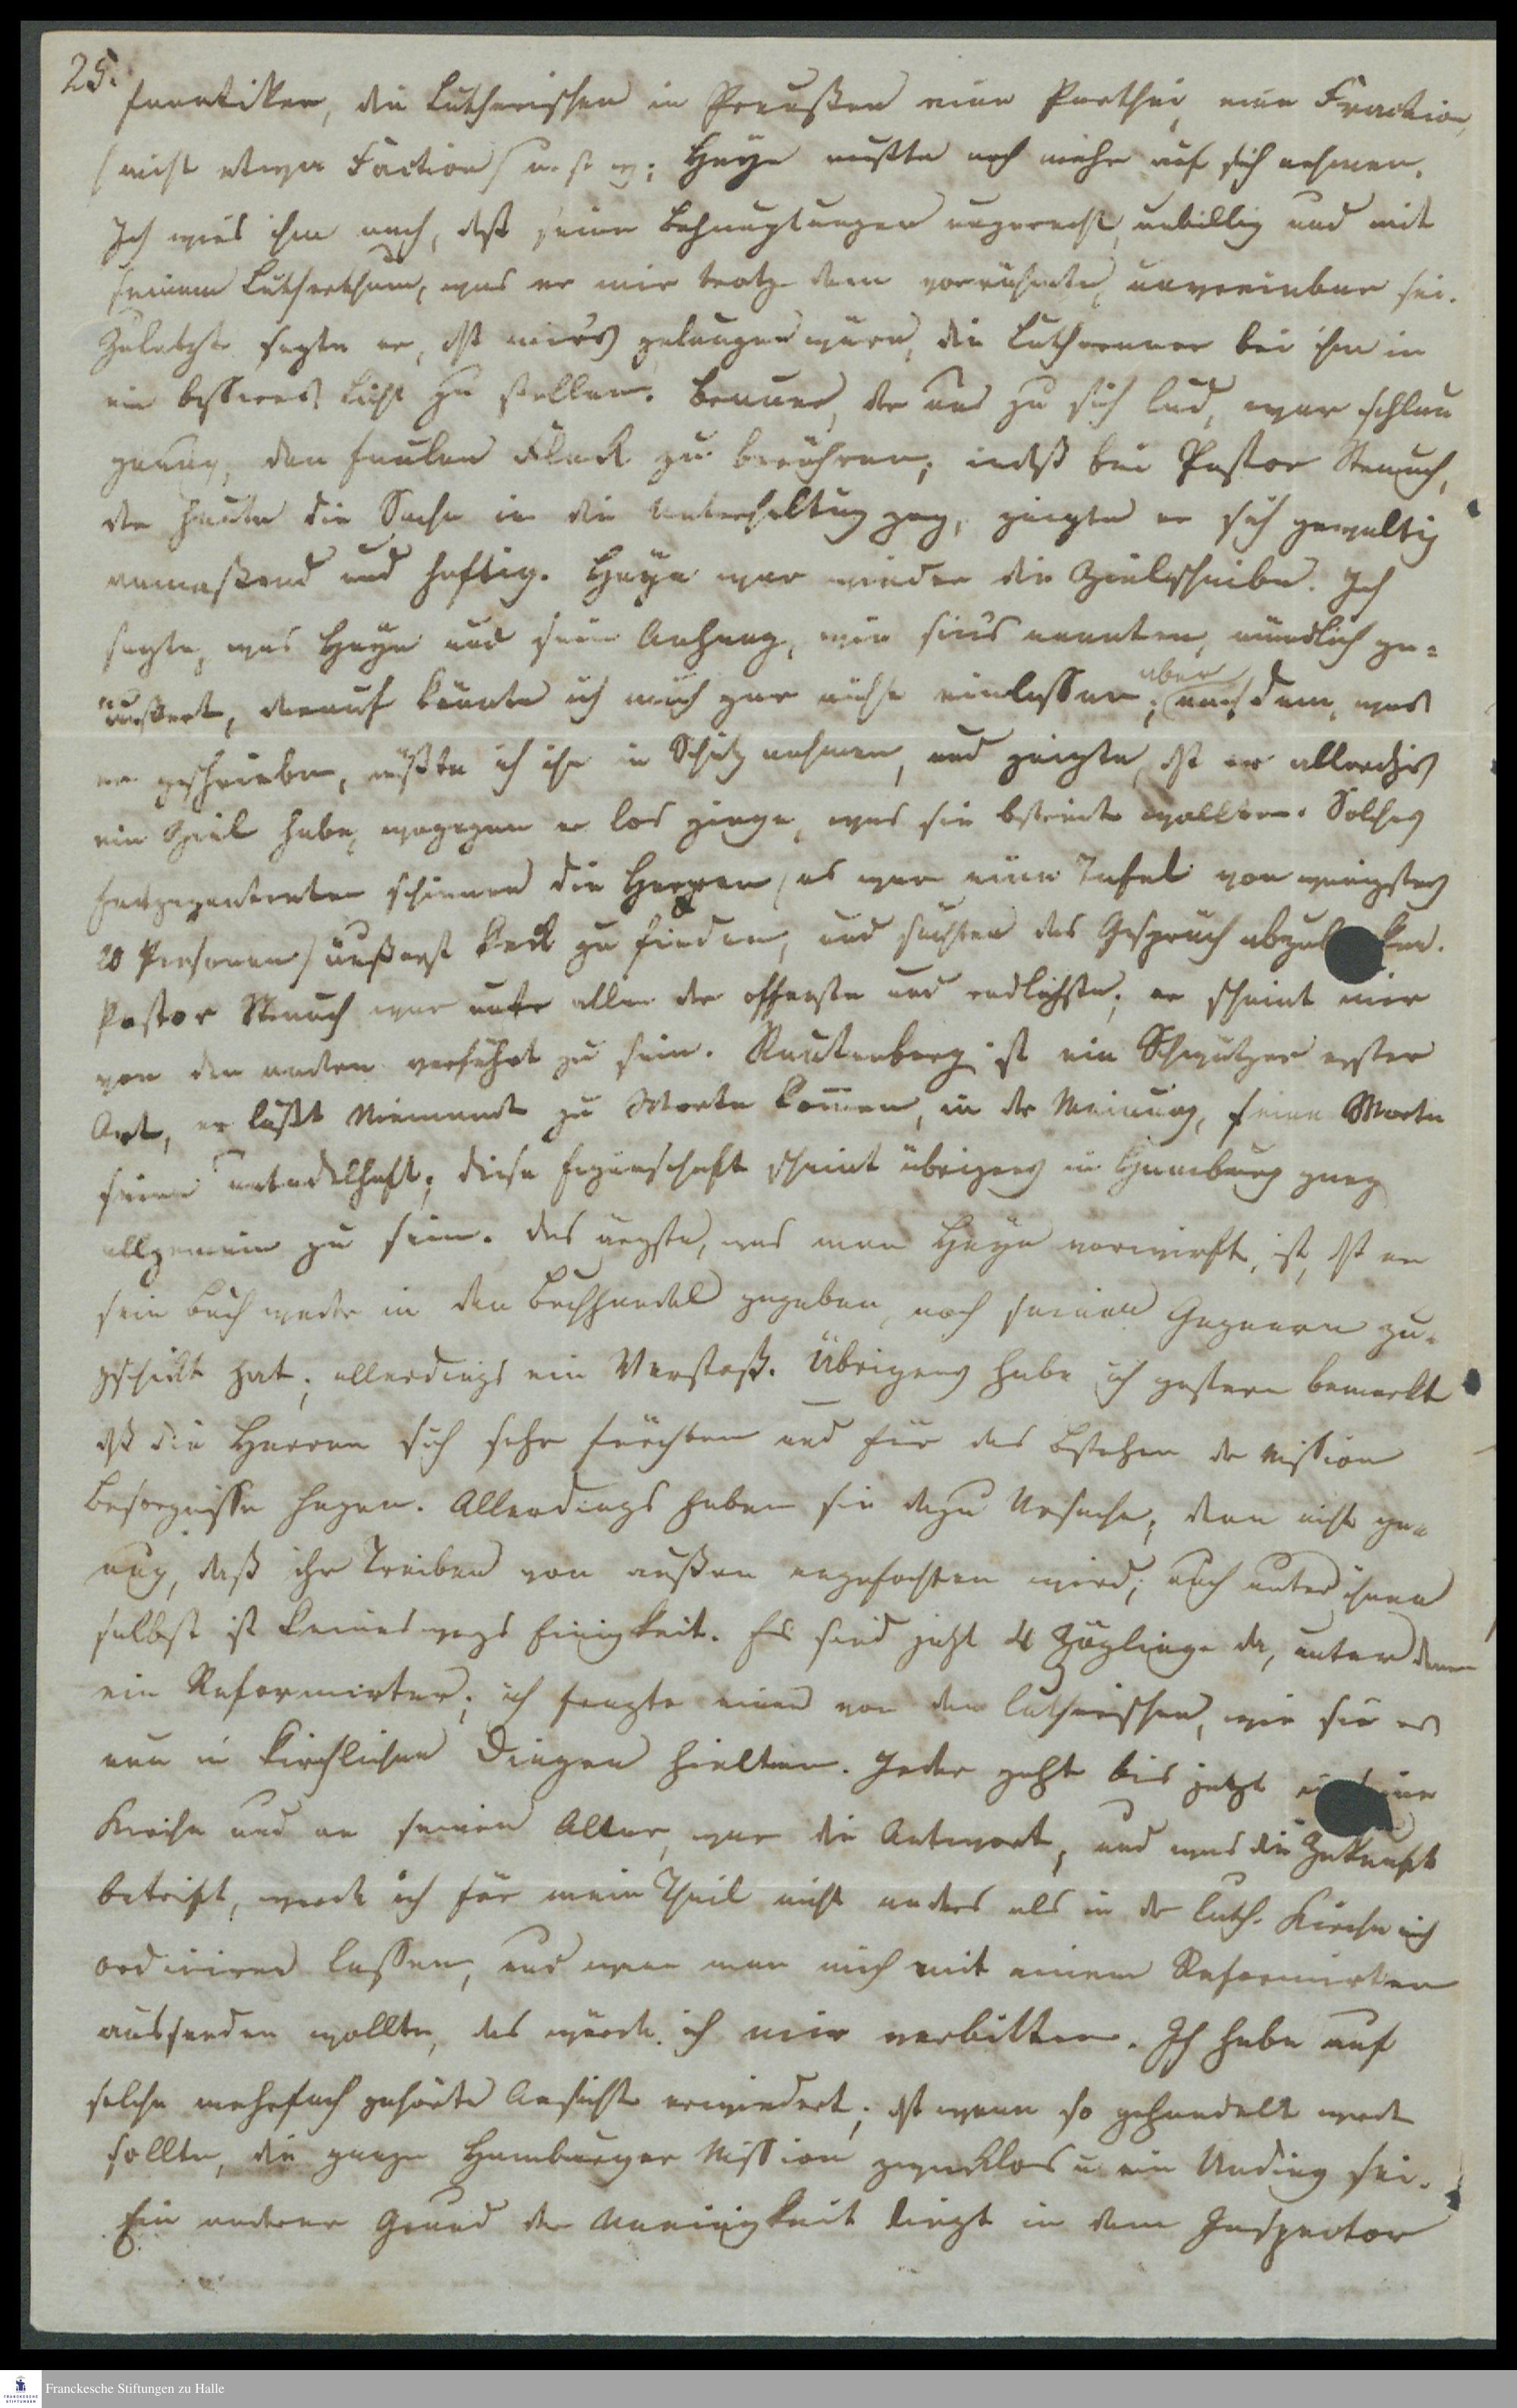 25.
fanatiker, die Lutherischen in Preußen eine Parthei, eine Fraction,
(nicht etwa Faction) u. s. w; Heye mußte noch mehr auf sich nehmen.
Ich wies ihm nach, daß seine Behauptungen ungerecht, unbillig und mit
seinem Lutherthum, was er mir trotz dem vorrühmte, unvereinbar sei.
Zuletzt sagte er, daß mirs gelungen wäre, die Lutheraner bei ihm in
ein besseres Licht zu stellen. Brauer, der uns zu sich lud, war schlau
genug, den faulen Fleck zu berühren; indeß bei Pastor Strauch,
der heute die Sache in die Unterhaltung zog, zeigte er sich gewaltig
anmaßend und heftig. Heye war wieder die Zielscheibe. Ich
sagte, was Heye und sein Anhang, wie sies nannten, mündlich ge-
äußert, darauf könnte ich mich gar nicht einlassen; aber nach dem, was
er geschrieben, müßte ich ihn in Schutz nehmen, und zeigte, daß er allerdings
ein Ziel habe, wogegen er los ginge, was sie bestreiten wollten. Solches
Entgegentreten schienen die Herren (es war eine Tafel von wenigstens
20 Personen) äußerst keck zu finden, und suchten das Gespräch abzulenken.
Pastor Strauch war unter allen der offenste und redlichste; er scheint mir
von den andern verführt zu sein. Rautenberg ist ein Schwätzer erster
Art, er läßt Niemand zu Worte kommen, in der Meinung, seine Worte
seien untadelhaft; diese Eigenschaft scheint übrigens in Hamburg ganz
allgemein zu sein. Das ärgste, was man Heye vorwirft, ist, daß er
sein Buch weder in den Buchhandel gegeben, noch seinen Gegnern zu-
geschickt hat; allerdings ein Verstoß. Übrigens habe ich gestern bemerkt
daß die Herren sich sehr fürchten und für das Bestehen der Mission
Besorgnisse hegen. Allerdings haben sie dazu Ursache; denn nicht ge-
nug, daß ihr Treiben von außen angefochten wird; auch unter ihnen
selbst ist keineswegs Einigkeit. Es sind jetzt 4 Zöglinge da, unter denen
ein Reformirter; ich fragte einen von den lutherischen, wie sie es
nun in kirchlichen Dingen hielten. Jeder geht bis jetzt in seine
Kirche und an seinen Altar, war die Antwort, und was die Zukunft
betrift, werde ich für mein Theil nicht anders als in der luth. Kirche mich
ordiniren lassen, und wenn man mich mit einem Reformirten
aussenden wollte, das würde ich mir verbitten. Ich habe auf
solche mehrfach gehörte Ansicht erwiedert, daß wenn so gehandelt werden
sollte, die ganze Hamburger Mission zwecklos u ein Unding sei.
Ein anderer Grund der Uneinigkeit liegt in dem Inspector
Franckesche Stiftungen zu Halle